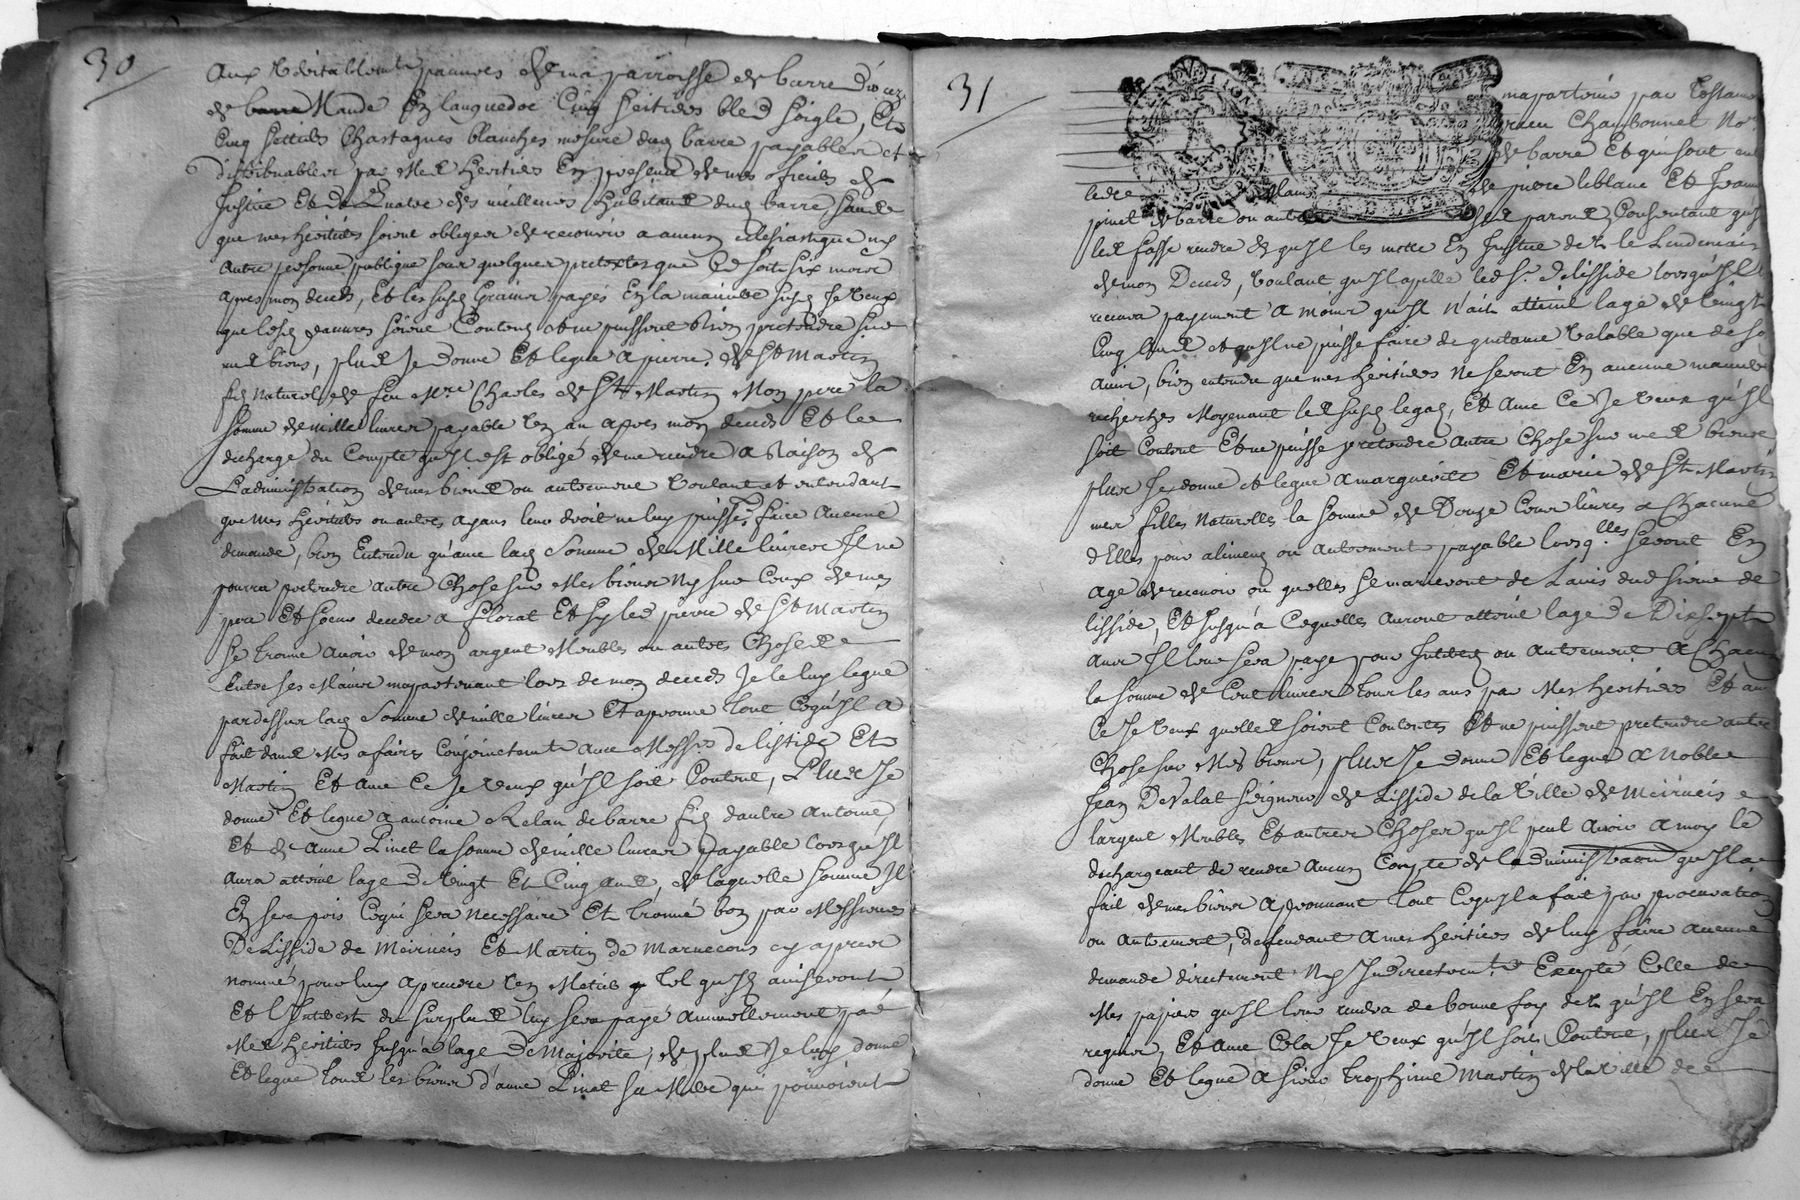 30
Aux veritablement pauvres de ma parroisse de barre
de barre Mande En languedoc Cinq Settiers bled Seigle, Et
Cinq Settiers Chastagnes blanches mesure dud barre payables et
distribuables par Mes heritiers En presence de mes officiers de
Justice Et de Quatre des meilleurs habitans dud barre, sans
que mes heritiers soient obliges de recevoir aucun eclesiastique ny
autre personne publique sous quelques pretextes que Ce soit six mois
apres mon deces, Et les susd grains payés En la maniere susd Je Veux
que lesd pauvres soient Contens et ne puissent Rien pretendre sur
mes biens, plus Je donne Et legue a pierre de St Martin
fils Naturel de feu Mre Charles de St Martin Mon pere la
somme de mille livres payable Un an apres mon deces Et le
decharge du Compte qu'Il est obligé de me rendre a Raison de
L'administration de mes biens ou autrement Voulant et entendant
que Mes heritiers ou autres ayans leur droit ne luy puissent faire Aucune
demande, bien Entendu qu'avec lad Somme de Mille livres Il ne
pourra pretendre autre Chose sur Mes biens Ny sur Ceux de mes
pere Et soeur decedée a florac Et sy led pierre de St Martin
se trouve avoir de mon argent Meubles ou autres Choses
Entre ses Mains mapartenant lors de mon deces Je le luy legue
par dessus lad Somme de mille livres Et aprouve tout Cequ'Il a
fait dans Mes afaires Conjoinctement avec Messrs de lisside Et
Martin Et avec Ce Je veux qu'Il soit Content, Plus Je
donne Et legue a antoine Relan de barre fils d'autre Antoine
Et d'Anne Pinet la somme de mille livres payable lors qu'Il
aura atteint lage de Vingt Et Cinq ans, de laquelle somme Il
En sera pris Cequi sera necessaire Et trouvé bon par Messieurs
De Lisside de Meirueis Et Martin de Marvecous cy apres
nommé pour luy aprendre Un Metier tel qu'Ils aviseront
Et l'Interest du surplus luy sera payé annuellement par
Mes heritiers Jusqu'a lage de Majorité, de plus Je luy donne
Et legue tous les biens d'anne Pinet sa Mere qui pouvoient
31
mapartenir par Testament
Charbonnel Nore
de barre Et qui sont
de pierre leblanc Et Jeanne
pinet de barre ou autres Consentant qu'Il
les fasse rendre Et qu'Il les mette En Justice dez le Lendemain
de mon Deces, Voulant qu'Il apelle led Sr. de lisside lorsqu'Il
recevra payement a moins qu'Il n'ait atteint lage de Vingt
Cinq ans et qu'Il ne puisse faire de quitance Valable que de son
avis, bien entendu que mes heritiers Ne seront En aucune maniere
recherchés Moyenant les susd legas, Et avec Ce Je veux qu'Il
soit Content Et ne puisse pretendre autre Chose sur mes biens
plus Je donne et legue a marguerite Et marie de St Martin
mes filles Naturelles la somme de Douze Cens livres a Chacune
d'Elles pour alimens ou autrement payable lorsqu'elles seront En
age de recevoir ou quelles se marieront de Lavis dud sieur de
lisside, Et Jusqu'a Cequelles auront atteint lage de Dixsept
ans Il leur sera payé pour Interest ou autrement a Chacune
la somme de Cent livres tous les ans par Mes heritiers Et avec
Ce Je Veux quelles soient Contentes Et ne puissent pretendre autre
Chose sur Mes biens, plus Je donne Et legue a Noble
Jean DeValat seigneur de Lisside de la Ville de Meirueis
largent Meubles Et autres Choses qu'Il peut avoir a moy le
dechargeant de rendre Aucun Compte de lAdministraon qu'Il a
fait de mes biens aprouvant tout Cequ'Il a fait par procuration
ou autrement, defendant a mes heritiers de luy faire aucune
demande directement Ny Indirectement Excepté Celle de
Mes papiers qu'Il leur rendra de bonne foy dez qu'Il En sera
requis, Et avec Cela Je Veux qu'Il soit Content, plus Je
donne Et legue a sieur trophime Martin de la Ville de